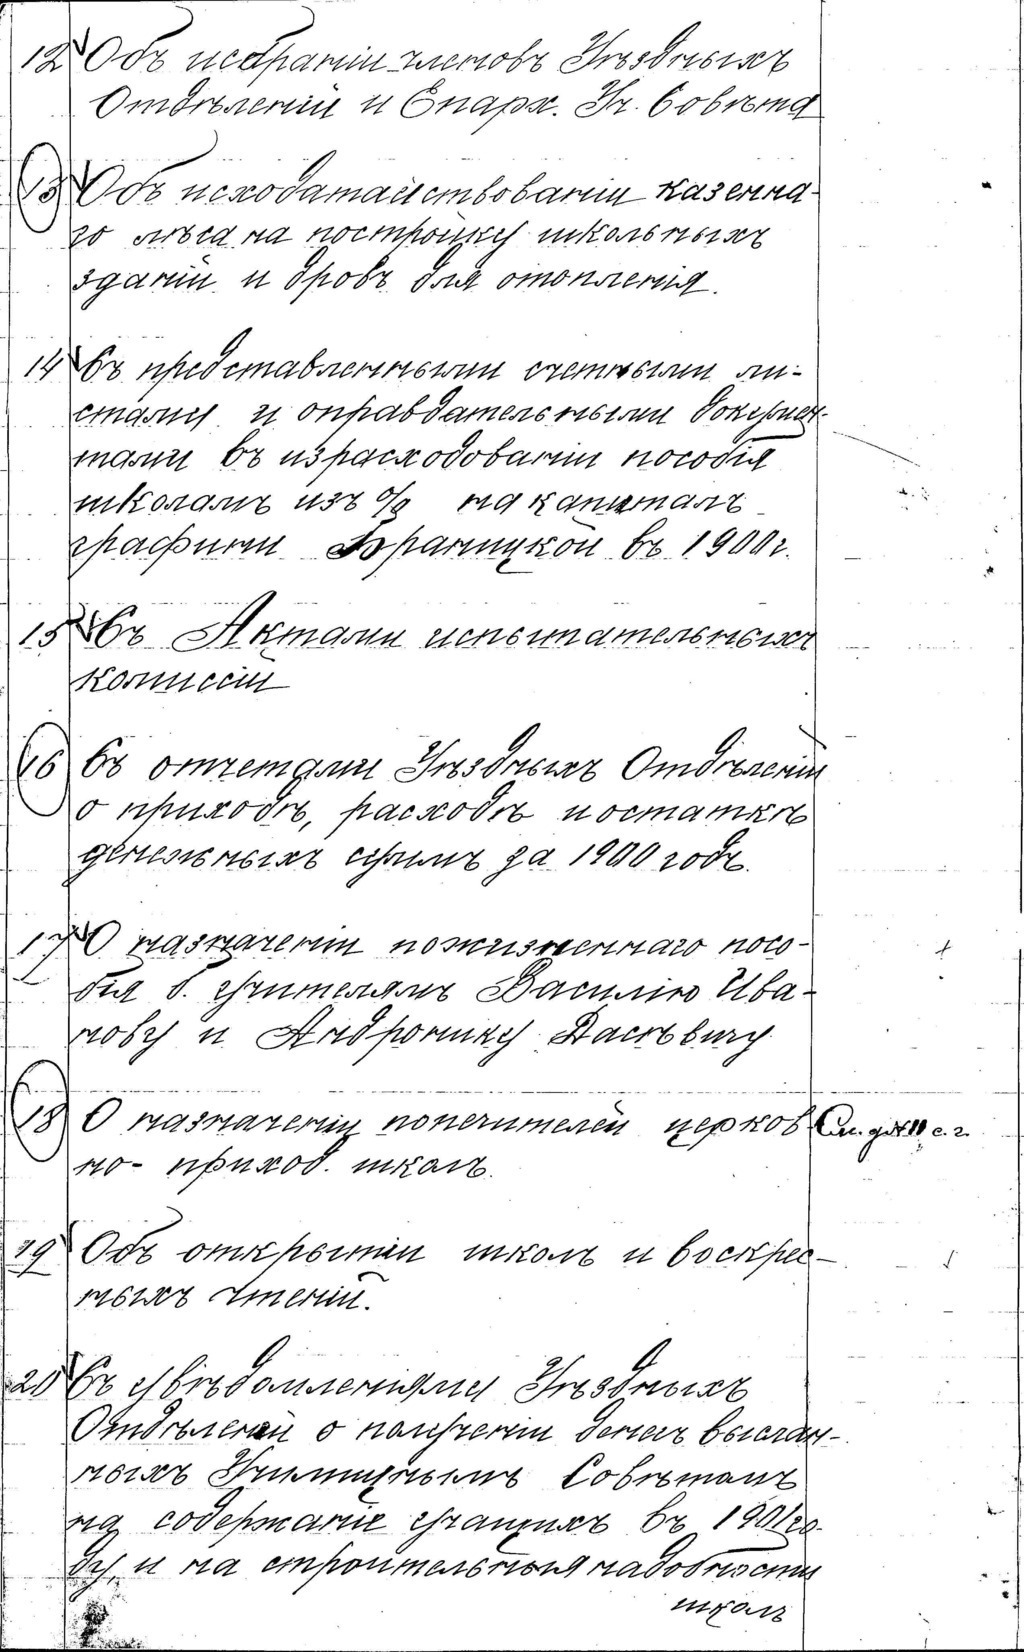 12 Объ избраніи членовъ Уѣздныхъ
Отдѣленій и Епарх. Уч. Совѣта
13 Объ исходатайствованіи казенна-
го лѣса на постройку школьныхъ
зданій и дровъ для отопленія.
14 Съ представленными счетными ли-
стами и оправдательными докумен-
тами въ израсходованіи пособія
школамъ изъ % на капиталъ
графини Браницкой въ 1900 г.
15 Съ Актами испытательныхъ
комиссій
16 Съ отчетами Уѣздныхъ Отдѣленій
о приходѣ, расходѣ и остаткѣ
денежныхъ суммъ за 1900 годъ.
17 О назначеніи пожизненнаго посо-
бія б. учителямъ Василію Ива-
нову и Андронику
18 О назначеніи попечителей церков
См. с. г.
но-приход. школъ.
19 Объ открытіи школъ и воскрес-
ныхъ чтеній.
20 Съ увѣдомленіями Уѣздныхъ
Отдѣленій о полученіи денегъ выслан-
ныхъ Училищнымъ Совѣтомъ
на содержаніе учащихъ въ 1901 го-
ду, и на строительныя надобности
школъ